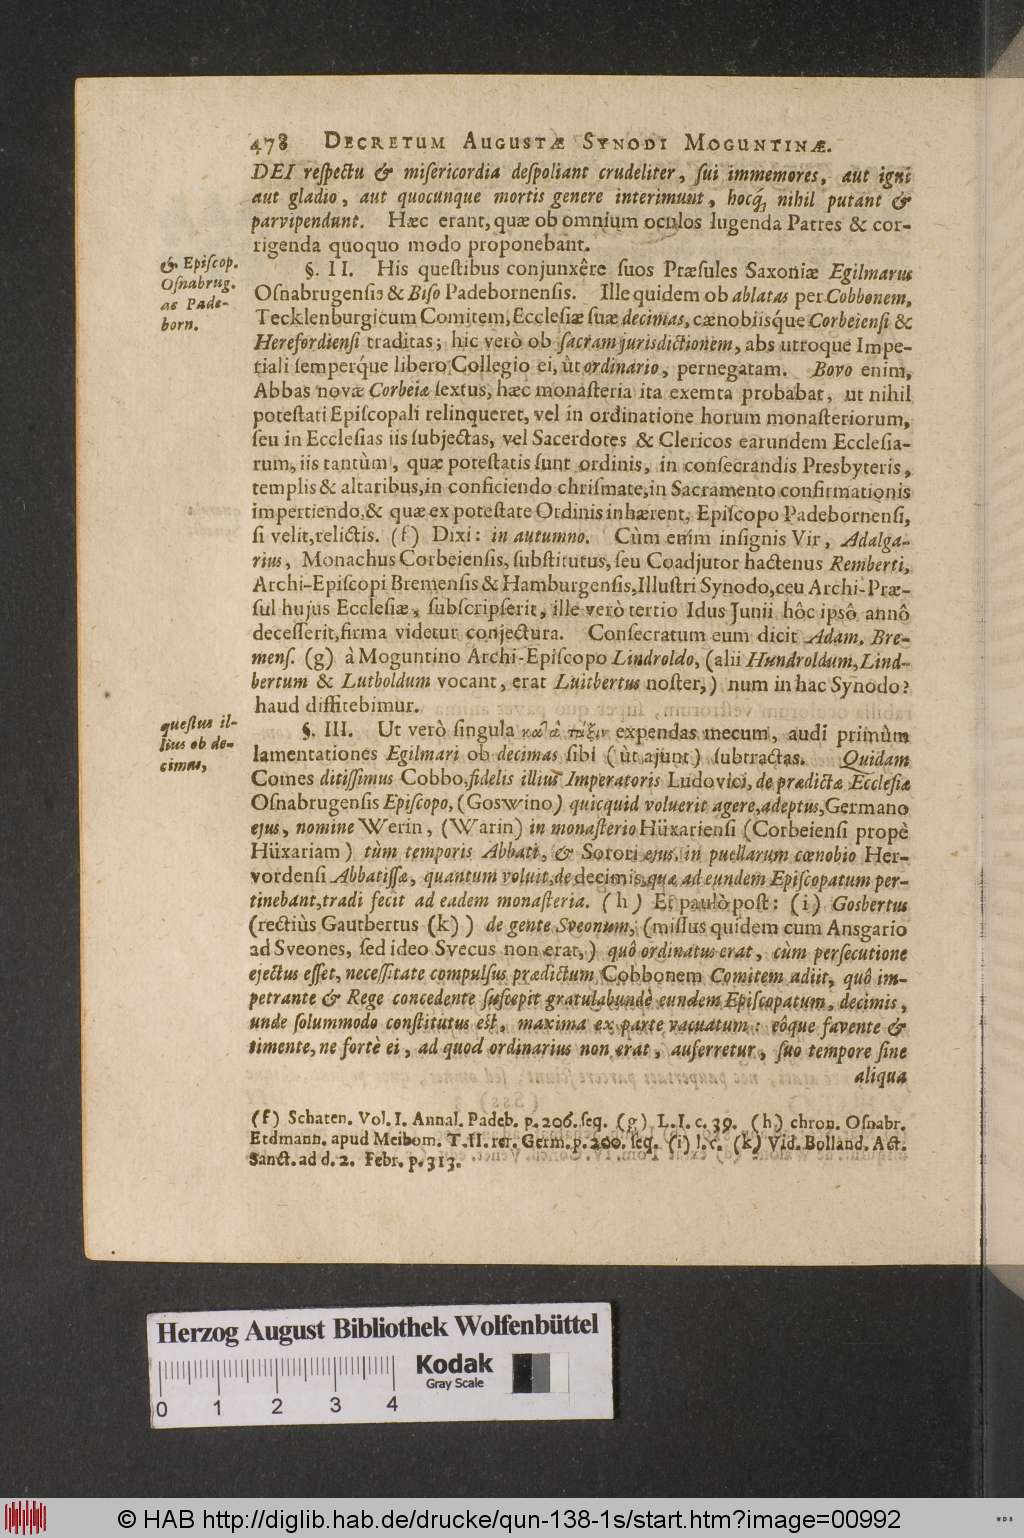 478 DECRETUM AUGUSTÆ SYNODI MOGUNTINÆ.
DEI reſpectu & miſericordia deſpoliant crudeliter, ſui immemores, aut igni
aut gladio, aut quocunque mortis genere interimunt, hocq́; nihil putant &
parvipendunt. Hæc erant, quæ ob omnium oculos lugenda Patres & cor-
rigenda quoquo modo proponebant.
& Epiſcop.
Oſnabrug.
ac Pade-
born.
§. II. His queſtibus conjunxêre ſuos Præſules Saxoniæ Egilmarus
Oſnabrugenſis & Biſo Padebornenſis. Ille quidem ob ablatas per Cobbonem,
Tecklenburgicum Comitem, Eccleſiæ ſuæ decimas, cænobiisq́ue Corbeienſi &
Herefordienſi traditas; hic verò ob ſacram jurisdictionem, abs utroque Impe-
riali ſemperq́ue libero Collegio ei, ùt ordinario, pernegatam. Bovo enim,
Abbas novæ Corbeiæ ſextus, hæc monaſteria ita exemta probabat, ut nihil
poteſtati Epiſcopali relinqueret, vel in ordinatione horum monaſteriorum,
ſeu in Eccleſias iis ſubjectas, vel Sacerdotes & Clericos earundem Eccleſia-
rum, iis tantùm, quæ poteſtatis ſunt ordinis, in conſecrandis Presbyteris,
templis & altaribus, in conficiendo chriſmate, in Sacramento confirmationis
impertiendo, & quæ ex poteſtate Ordinis inhærent, Epiſcopo Padebornenſi,
ſi velit, relictis. (f) Dixi: in autumno. Cùm enim inſignis Vir, Adalga-
rius, Monachus Corbeienſis, ſubſtitutus, ſeu Coadjutor hactenus Remberti,
Archi-Epiſcopi Bremenſis & Hamburgenſis, Illuſtri Synodo, ceu Archi-Præ-
ſul hujus Eccleſiæ, ſubſcripſerit, ille verò tertio Idus Junii hôc ipsô annô
deceſſerit, firma videtur conjectura. Conſecratum eum dicit Adam. Bre-
menſ. (g) à Moguntino Archi-Epiſcopo Lindroldo, (alii Hundroldum, Lind-
bertum & Lutboldum vocant, erat Luitbertus noſter,) num in hac Synodo?
haud diffitebimur.
queſtus il-
lius ob de-
cimas,
§. III. Ut verò ſingula καϊὰ τάξιν expendas mecum, audi primùm
lamentationes Egilmari ob decimas ſibi (ùt ajunt) ſubtractas. Quidam
Comes ditiſſimus Cobbo, fidelis illius Imperatoris Ludovici, de prædictæ Eccleſiæ
Oſnabrugenſis Epiſcopo, (Goswino) quicquid voluerit agere, adeptus, Germano
ejus, nomine Werin, (Warin) in monaſterio Hüxarienſi (Corbeienſi propè
Hüxariam) tùm temporis Abbati, & Sorori ejus, in puellarum cœnobio Her-
vordenſi Abbatiſſæ, quantum voluit, de decimis, quæ ad eundem Epiſcopatum per-
tinebant, tradi fecit ad eadem monaſteria. (h) Et paulò poſt: (i) Gosbertus
(rectiùs Gautbertus (k)) de gente Sveonum, (miſſus quidem cum Ansgario
ad Sveones, ſed ideo Svecus non erat,) quô ordinatus erat, cùm perſecutione
ejectus eſſet, neceſſitate compulſus prædictum Cobbonem Comitem adiit, quô im-
petrante & Rege concedente ſuſcepit gratulabundè eundem Epiſcopatum, decimis,
unde ſolummodo conſtitutus eſt, maxima ex parte vacuatum: eôque favente &
timente, ne fortè ei, ad quod ordinarius non erat, auferretur, ſuo tempore ſine
aliqua
(f) Schaten. Vol. I. Annal. Padeb. p. 206. ſeq. (g) L. I. c. 39. (h) chron. Oſnabr.
Erdmann. apud Meibom. T. II. rer. Germ. p. 200. ſeq. (i) l. c. (k) Vid. Bolland. Act.
Sanct. ad d. 2. Febr. p. 313.
Herzog August Bibliothek Wolfenbüttel
Kodak
Gray Scale
0 1 2 3 4
© HAB http://diglib.hab.de/drucke/qun-138-1s/start.htm?image=00992